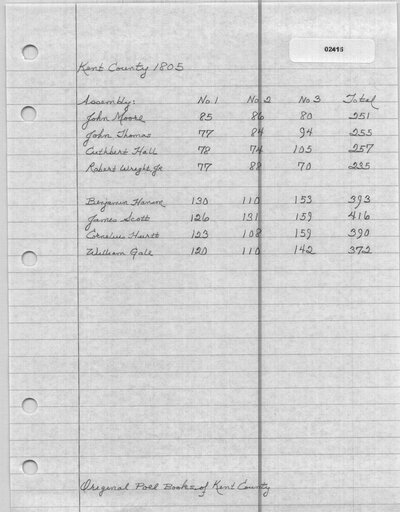 02415
Kent County 1805
Assembly: No 1 No. 2 No 3 Total
John Moore 85 86 80 251
John Thomas 77 84 94 255
Cuthbert Hall 78 74 105 257
Robert Wright Jr 77 88 70 235
Benjamin Hanson 130 110 153 393
James Scott 126 131 159 416
Cornelius Hurtt 123 108 159 390
William Gale 120 110 142 372
Original Poll Books of Kent County